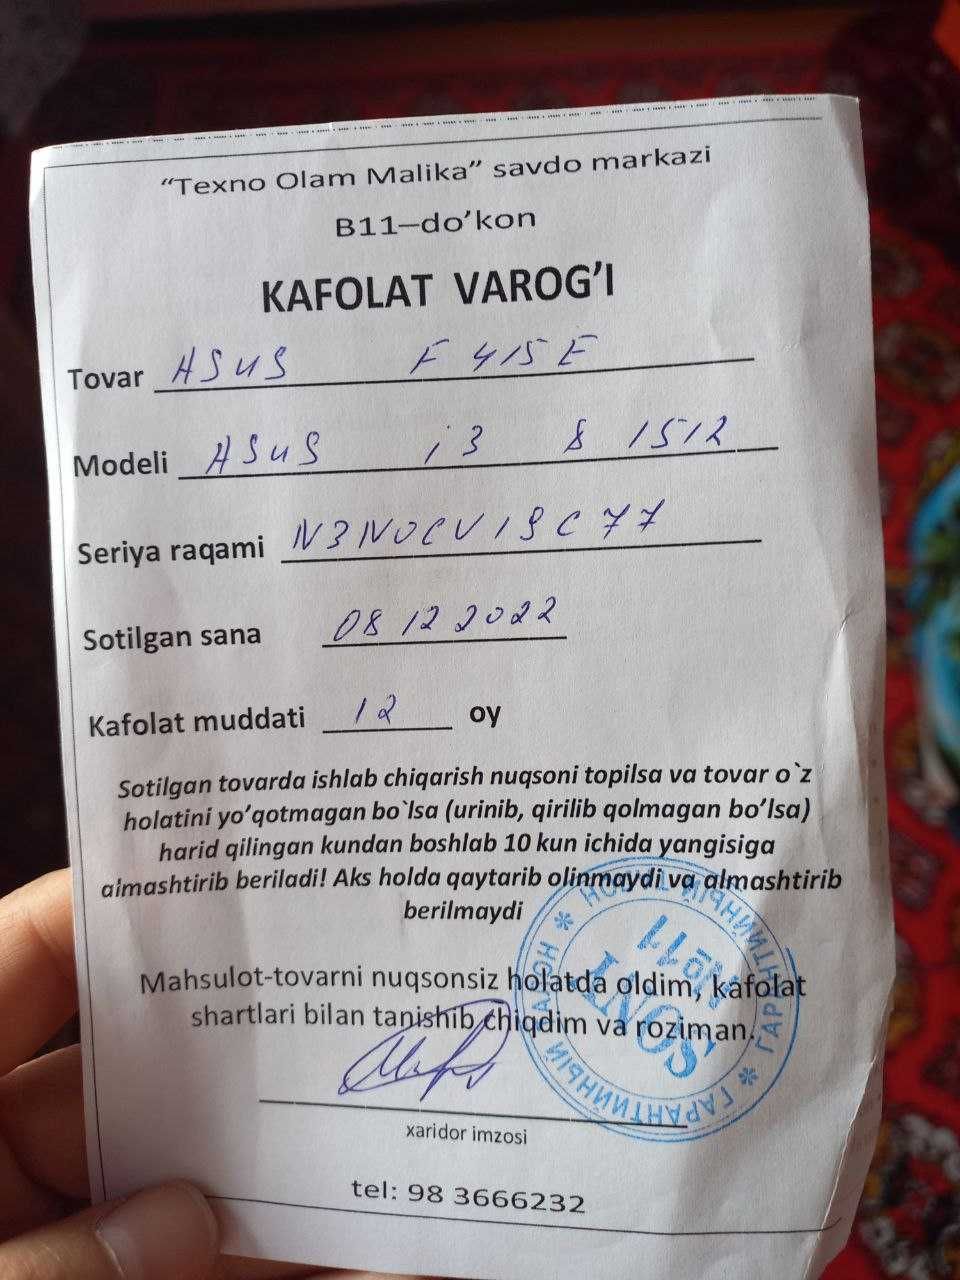 “Texno Olam Malika” savdo markazi
B11–do’kon
KAFOLAT VAROG’I
Tovar ASUS F 415 E
Modeli ASUS i3 8 1512
Seriya raqami N3N0CV19C77
Sotilgan sana 08 12 2022
Kafolat muddati 12 oy
Sotilgan tovarda ishlab chiqarish nuqsoni topilsa va tovar o`z
holatini yo’qotmagan bo`lsa (urinib, qirilib qolmagan bo’lsa)
harid qilingan kundan boshlab 10 kun ichida yangisiga
almashtirib beriladi! Aks holda qaytarib olinmaydi va almashtirib
berilmaydi
Mahsulot-tovarni nuqsonsiz holatda oldim, kafolat
shartlari bilan tanishib chiqdim va roziman.
xaridor imzosi
tel: 98 3666232
ГАРАНТИЙНЫЙ ТАЛОН * ГАРАНТИЙНЫЙ ТАЛОН *
№11
SONY